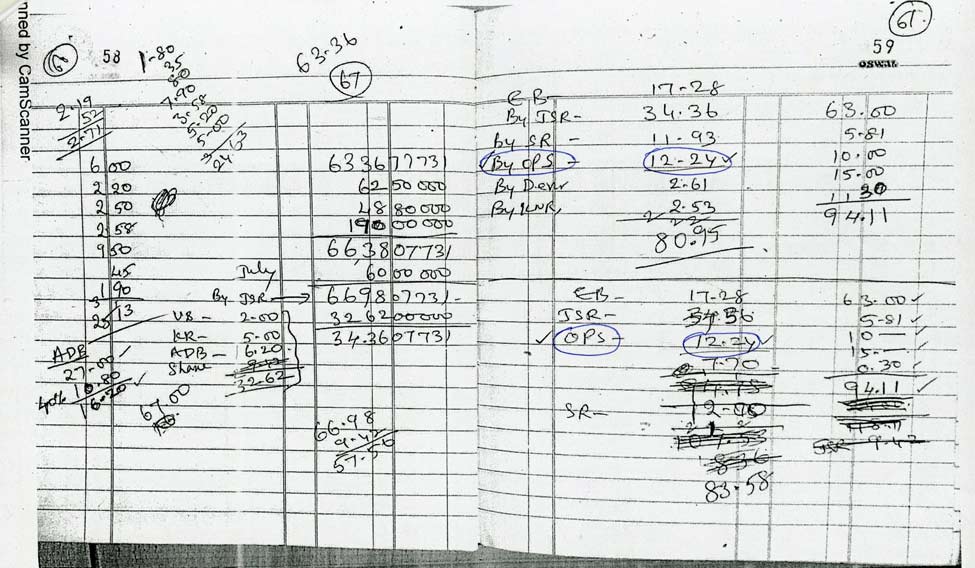 nned by CamScanner
58
1-80
35
80
7.90
3.58
5.20
5.00
24.53
63.36
67
2.19
52
2.71
6 00
2 20
2 50
2 58
9 50
45
1 90
25 13
ADB
27.00
10.80
16.20
67.00
633677731
6250000
4880000
19000000
663807731
6000000
July
By JSR → 669807731-
326200000
343607731
VS - 2.00
KR - 5.00
ADB - 16.20
Share 9.42
32.62
66.98
9.42
57.56
61
59
OSWAL
EB- 17-28
By JSR- 34.36
By SR - 11.93
By OPS - 12-24
By Dev 2.61
2.53
80.95
63.00
5.81
10.00
15.00
94.11
EB- 17-28
JSR- 34.36
OPS- 12.24
SR- 12.00
83.58
63.00
5.81
10
15
0.30
94.11
JSR 9.42